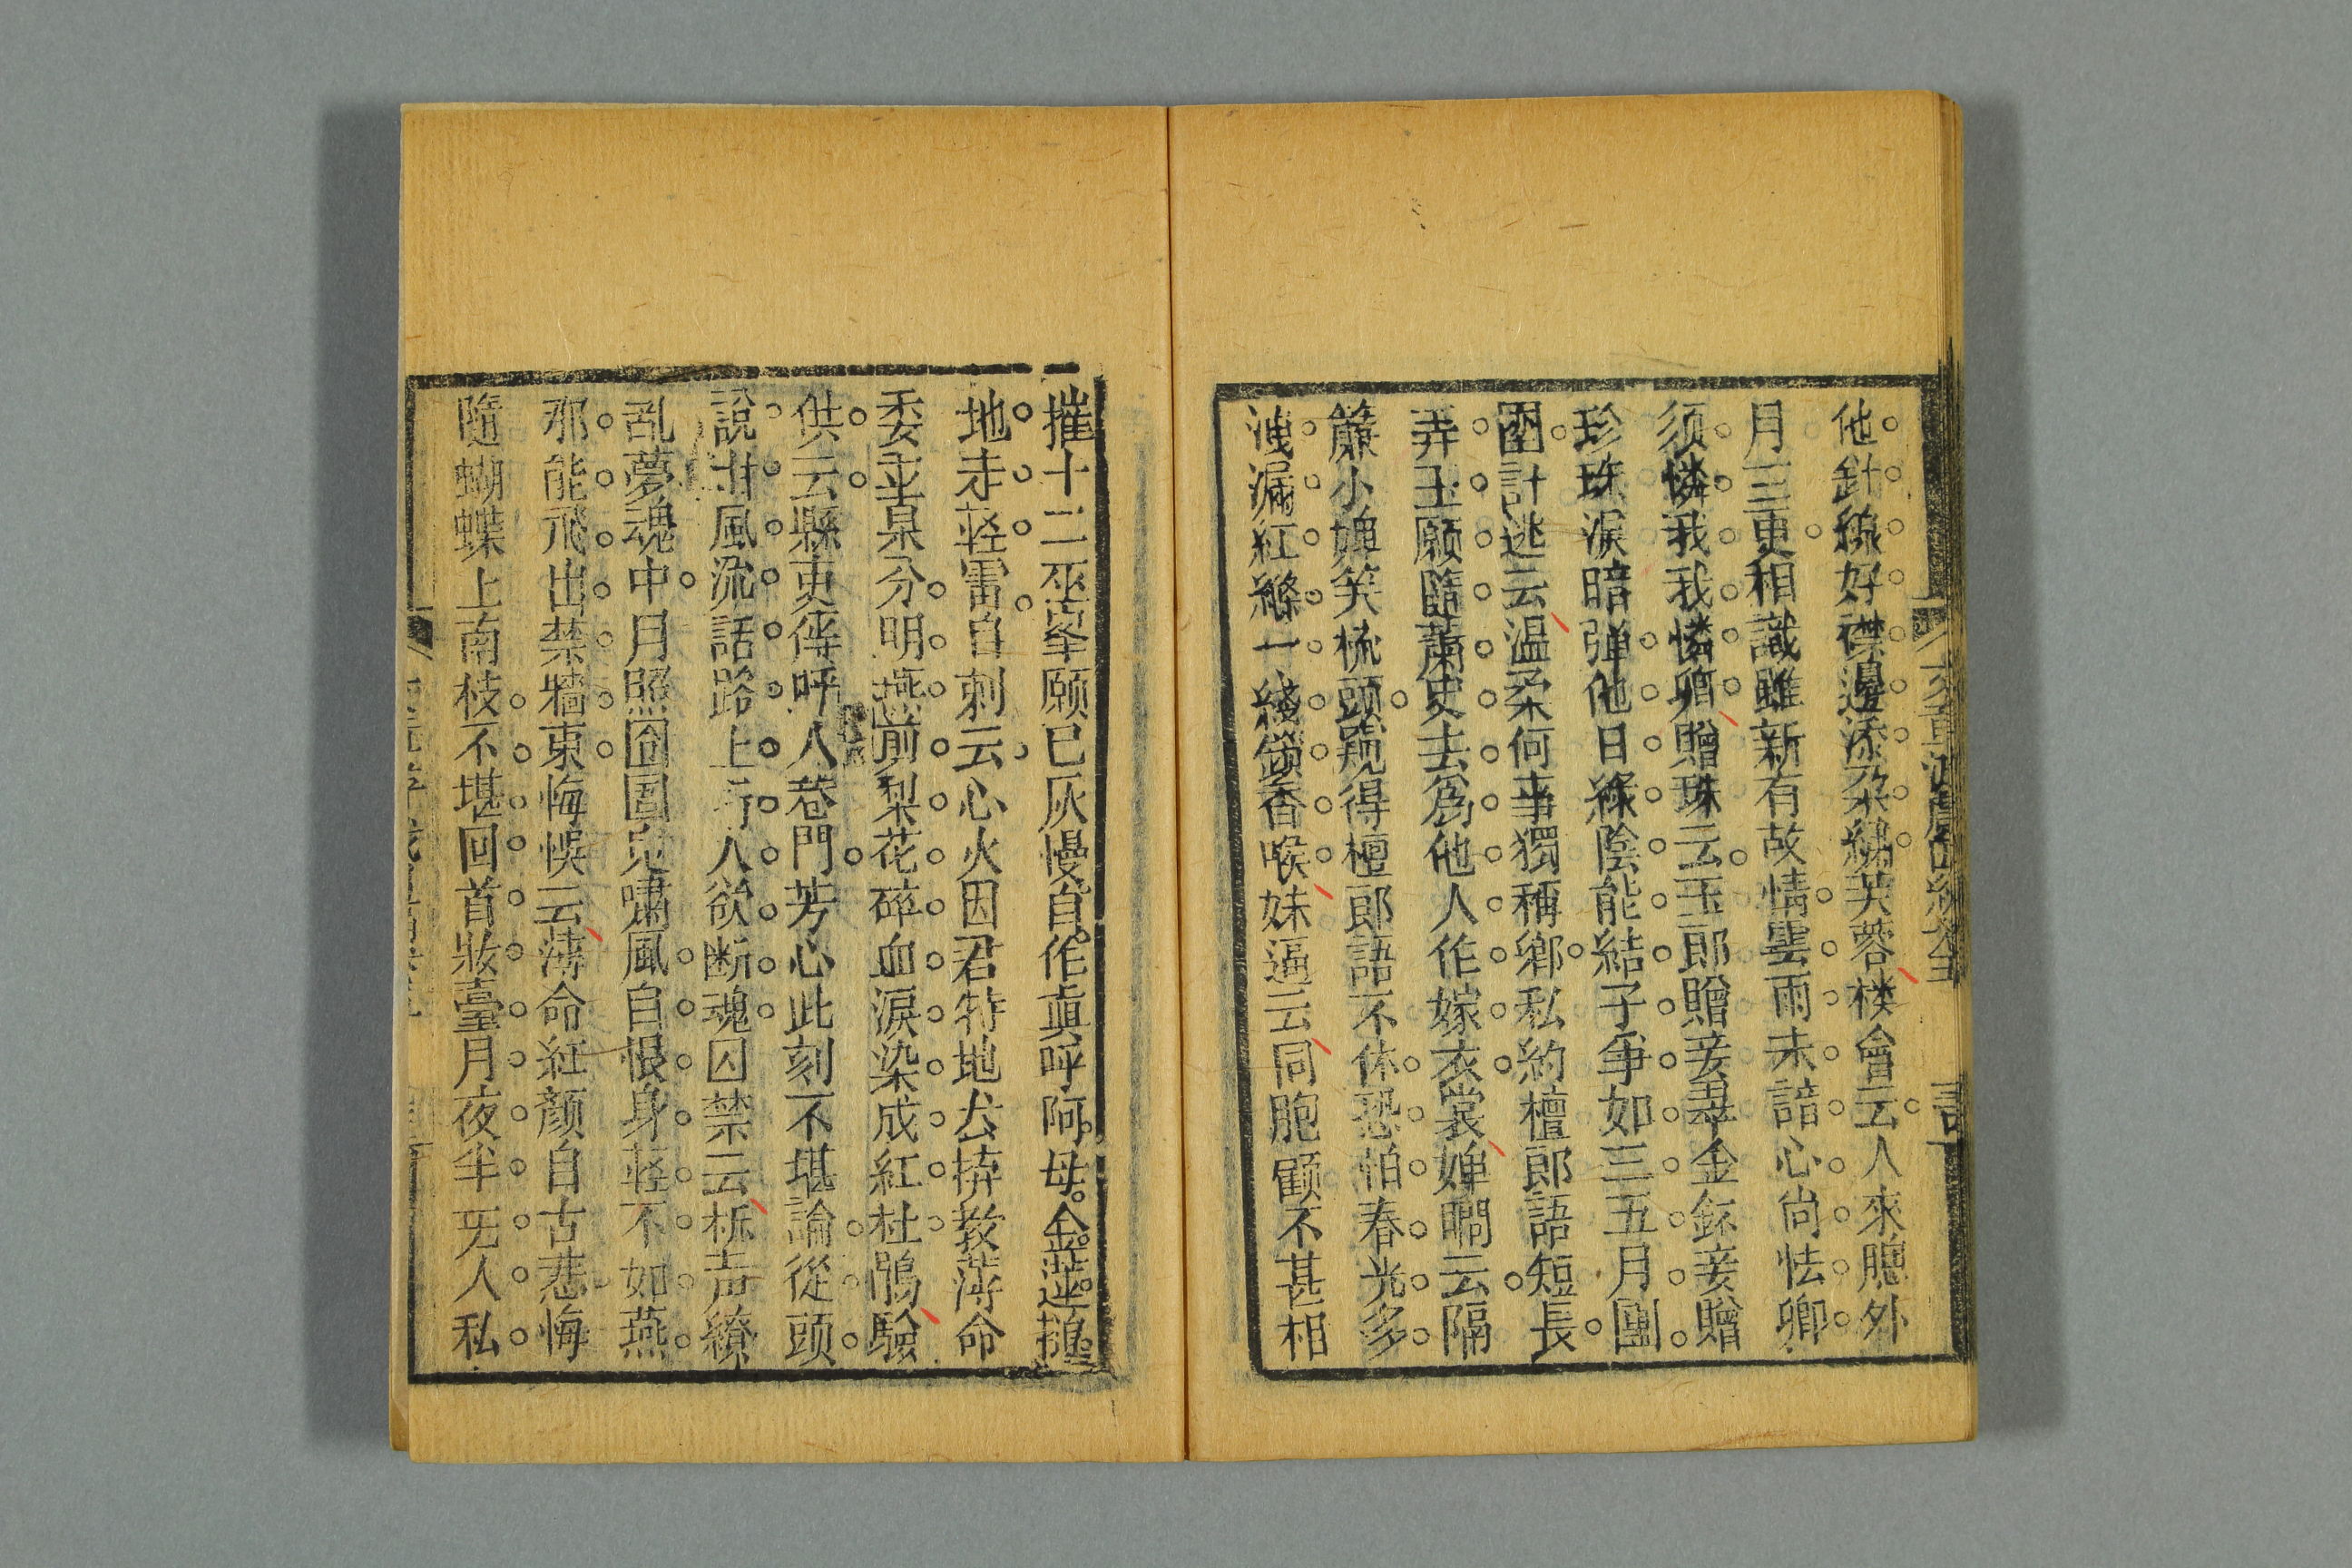 他針線好襟邊添朶綉芙蓉樓會云人來牕外
月三更相識雖新有故情雲雨未諳心尚怯卿
須憐我我憐卿贈珠云玉郎贈妾畢金釵妾贈
珍珠淚暗弹他日綠陰能結子争如三五月團
圞計逃云温柔何事獨稱鄉私約檀郎語短長
弄玉願隨蕭史去爲他人作嫁衣裳婢瞯云隔
簾小婢笑梳頭竊得檀郎語不休恐怕春光多
洩漏紅絲一綫鎖香喉妹逼云同胞顧不甚相
摧十二巫峯願已灰慢自作眞呼阿母金蓮
地走輕雷自刺云心火因君特地去拚教薄命
委黄泉分明燕前梨花碎血淚染成紅杜鵑驗
供云縣吏俜呼八巷門芳心此刻不堪論從頭
說出風流話路上行人欲断魂囚禁云柝声繚
乱夢魂中月照囹圄鬼嘯風自恨身輕不如燕
那能飛出禁牆東悔悞云薄命紅顏自古悲悔
隨蝴蝶上南枝不堪回首妝臺月夜半旡人私